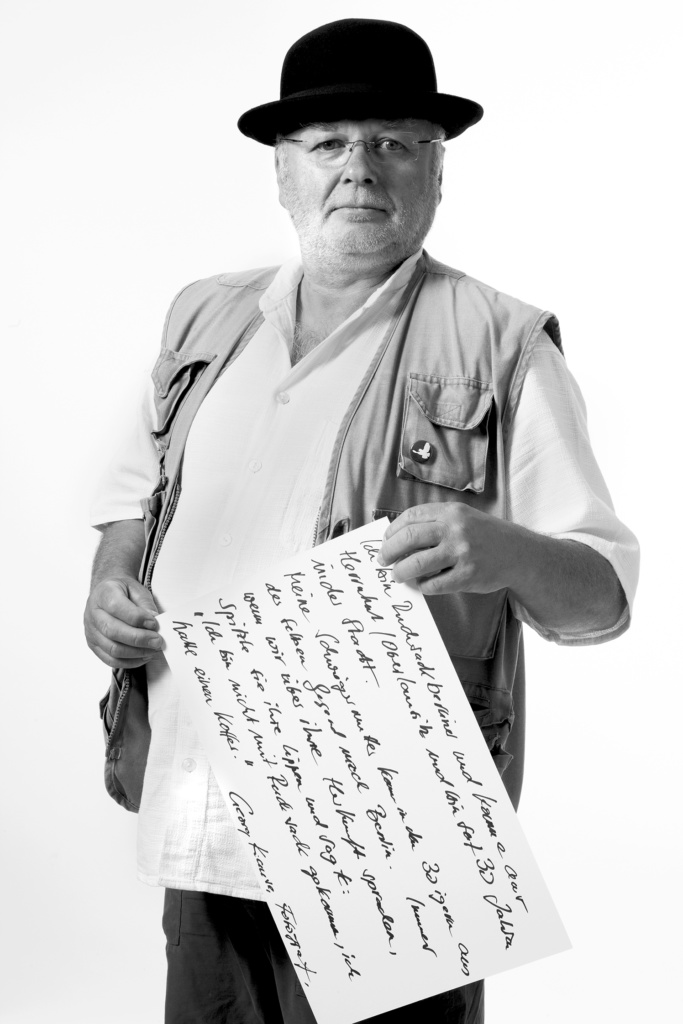 Ich bin Rucksackberliner und komme aus
Herrnhut/Oberlausitz und bin seit 30 Jahren
in der Stadt.
Meine Schwiegermutter kam in den 30igern aus
der selben Gegend nach Berlin. Immer
wenn wir über ihre Herkunft sprechen,
spitzte sie ihre Lippen und sagte:
"Ich bin nicht mit Rucksack gekommen, ich
hatte einen Koffer." Georg Krause, Fotograf,